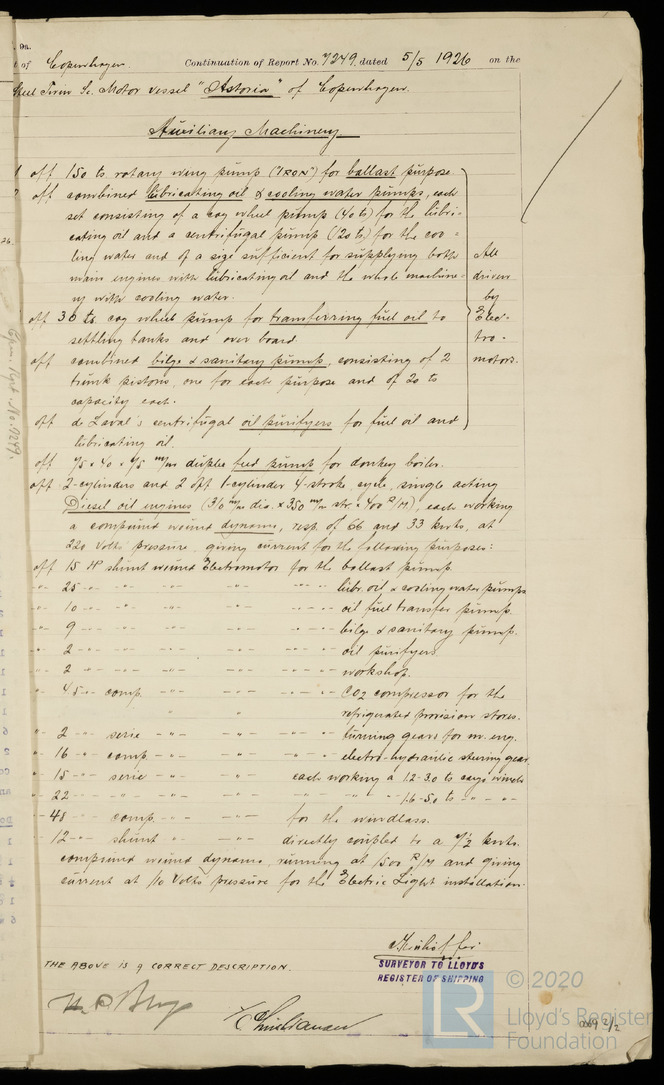 9a.
of Copenhagen Continuation of Report No. 7249, dated 5/5 1926 on the
Steel Twin Sc. Motor vessel "Astoria" of Copenhagen.
Auxiliary Machinery
off 150 ts rotary wing pump ("IRON") for ballast purpose
off combined lubricating oil & cooling water pumps, each
set consisting of a cog wheel pump (40 ts) for the lubri-
cating oil and a centrifugal pump (120 ts) for the coo-
ling water and of a size sufficient for supplying both
main engines with lubricating oil and the whole machine-
ry with cooling water.
off 30 ts. cog wheel pump for transferring fuel oil to
settling tanks and over board
off combined bilge & sanitary pump, consisting of 2
trunk pistons, one for each purpose and of 20 ts
capacity each.
off de Laval's centrifugal oil purifyers for fuel oil and
lubricating oil.
All
driven
by
Elec-
tro-
motors.
off duplex feed pump for donkey boiler.
off 2-cylinders and 2 off 1-cylinder 4-stroke cycle, single acting
Diesel oil engines (310 m/m dia. × 350 m/m str. × 400 R/M), each working
a compound wound dynamo, resp. of 66 and 33 kwts, at
220 Volts pressure, giving current for the following purposes:
off 15 H shunt wound Electromotor for the ballast pump
-"- 25 -"- -"- -"- -"- lubr. oil & cooling water pumps
-"- 10 -"- -"- -"- -"- oil fuel transfer pump.
-"- 9 -"- -"- -"- -"- bilge & sanitary pump.
-"- 2 -"- -"- -"- -"- oil purifyers
-"- 2 -"- -"- -"- -"- workshop.
-"- 45 -"- comp. -"- -"- -"- CO2 compressor for the
refrigerated provision stores.
-"- 2 -"- serie -"- -"- -"- turning gears for m. eng.
-"- 16 -"- comp. -"- -"- -"- electro-hydraulic steering gear.
-"- 15 -"- serie -"- -"- each working a 1.2-30 ts cargo winch
-"- 22 -"- -"- -"- -"- -"- -"- 1.6-50 ts -"- -"-
-"- 48 -"- comp. -"- -"- for the windlass.
-"- 12 -"- shunt -"- -"- directly coupled to a 7½ kwts.
compound wound dynamo, running at 1500 R/M and giving
current at 110 Volts pressure for the Electric Light installation.
SURVEYOR TO LLOYD'S
REGISTER OF SHIPPING
THE ABOVE IS A CORRECT DESCRIPTION.
© 2020
Lloyd's Register
Foundation
LR
0069 2/2